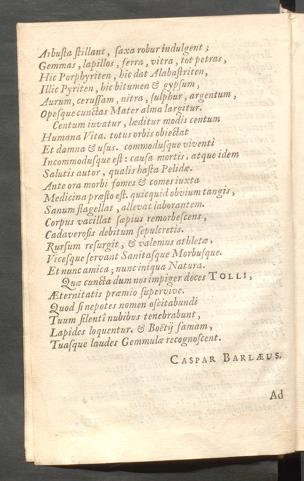 Arbusta stillant, saxa robur indulgent;
Gemmas, lapillos, ferra, vitra, tot petras,
Hic Porphyriten, hic dat Alabastriten,
Illic Pyriten, hic bitumen & gypsum,
Aurum, cerussam, nitra, sulphur, argentum,
Opesque cunctas Mater alma largitur.
Centum iuvatur, læditur modis centum
Humana Vita. totus orbis obiectat
Et damna & usus. commodusque viventi
Incommodusque est: causa mortis, atque idem
Salutis autor, qualis hasta Pelidæ.
Ante ora morbi fomes & comes iuxta
Medicina præsto est. quicquid obvium tangis,
Sanum flagellat, allevat laborantem.
Corpus vacillat sæpius remorbescens,
Cadaverosis debitum sepulcretis.
Rursum resurgit, & valemus athletæ,
Vicesque servant Sanitasque Morbusque.
Et nunc amica; nunc iniqua Natura.
Quæ cuncta dum nos impiger doces TOLLI,
Æternitatis præmio supervive.
Quod si nepotes nomen oscitabundi
Tuum silenti nubibus tenebrabunt,
Lapides loquentur. & Boëtij famam,
Tuasque laudes Gemmulæ recognoscent.
CASPAR BARLÆUS.
Ad